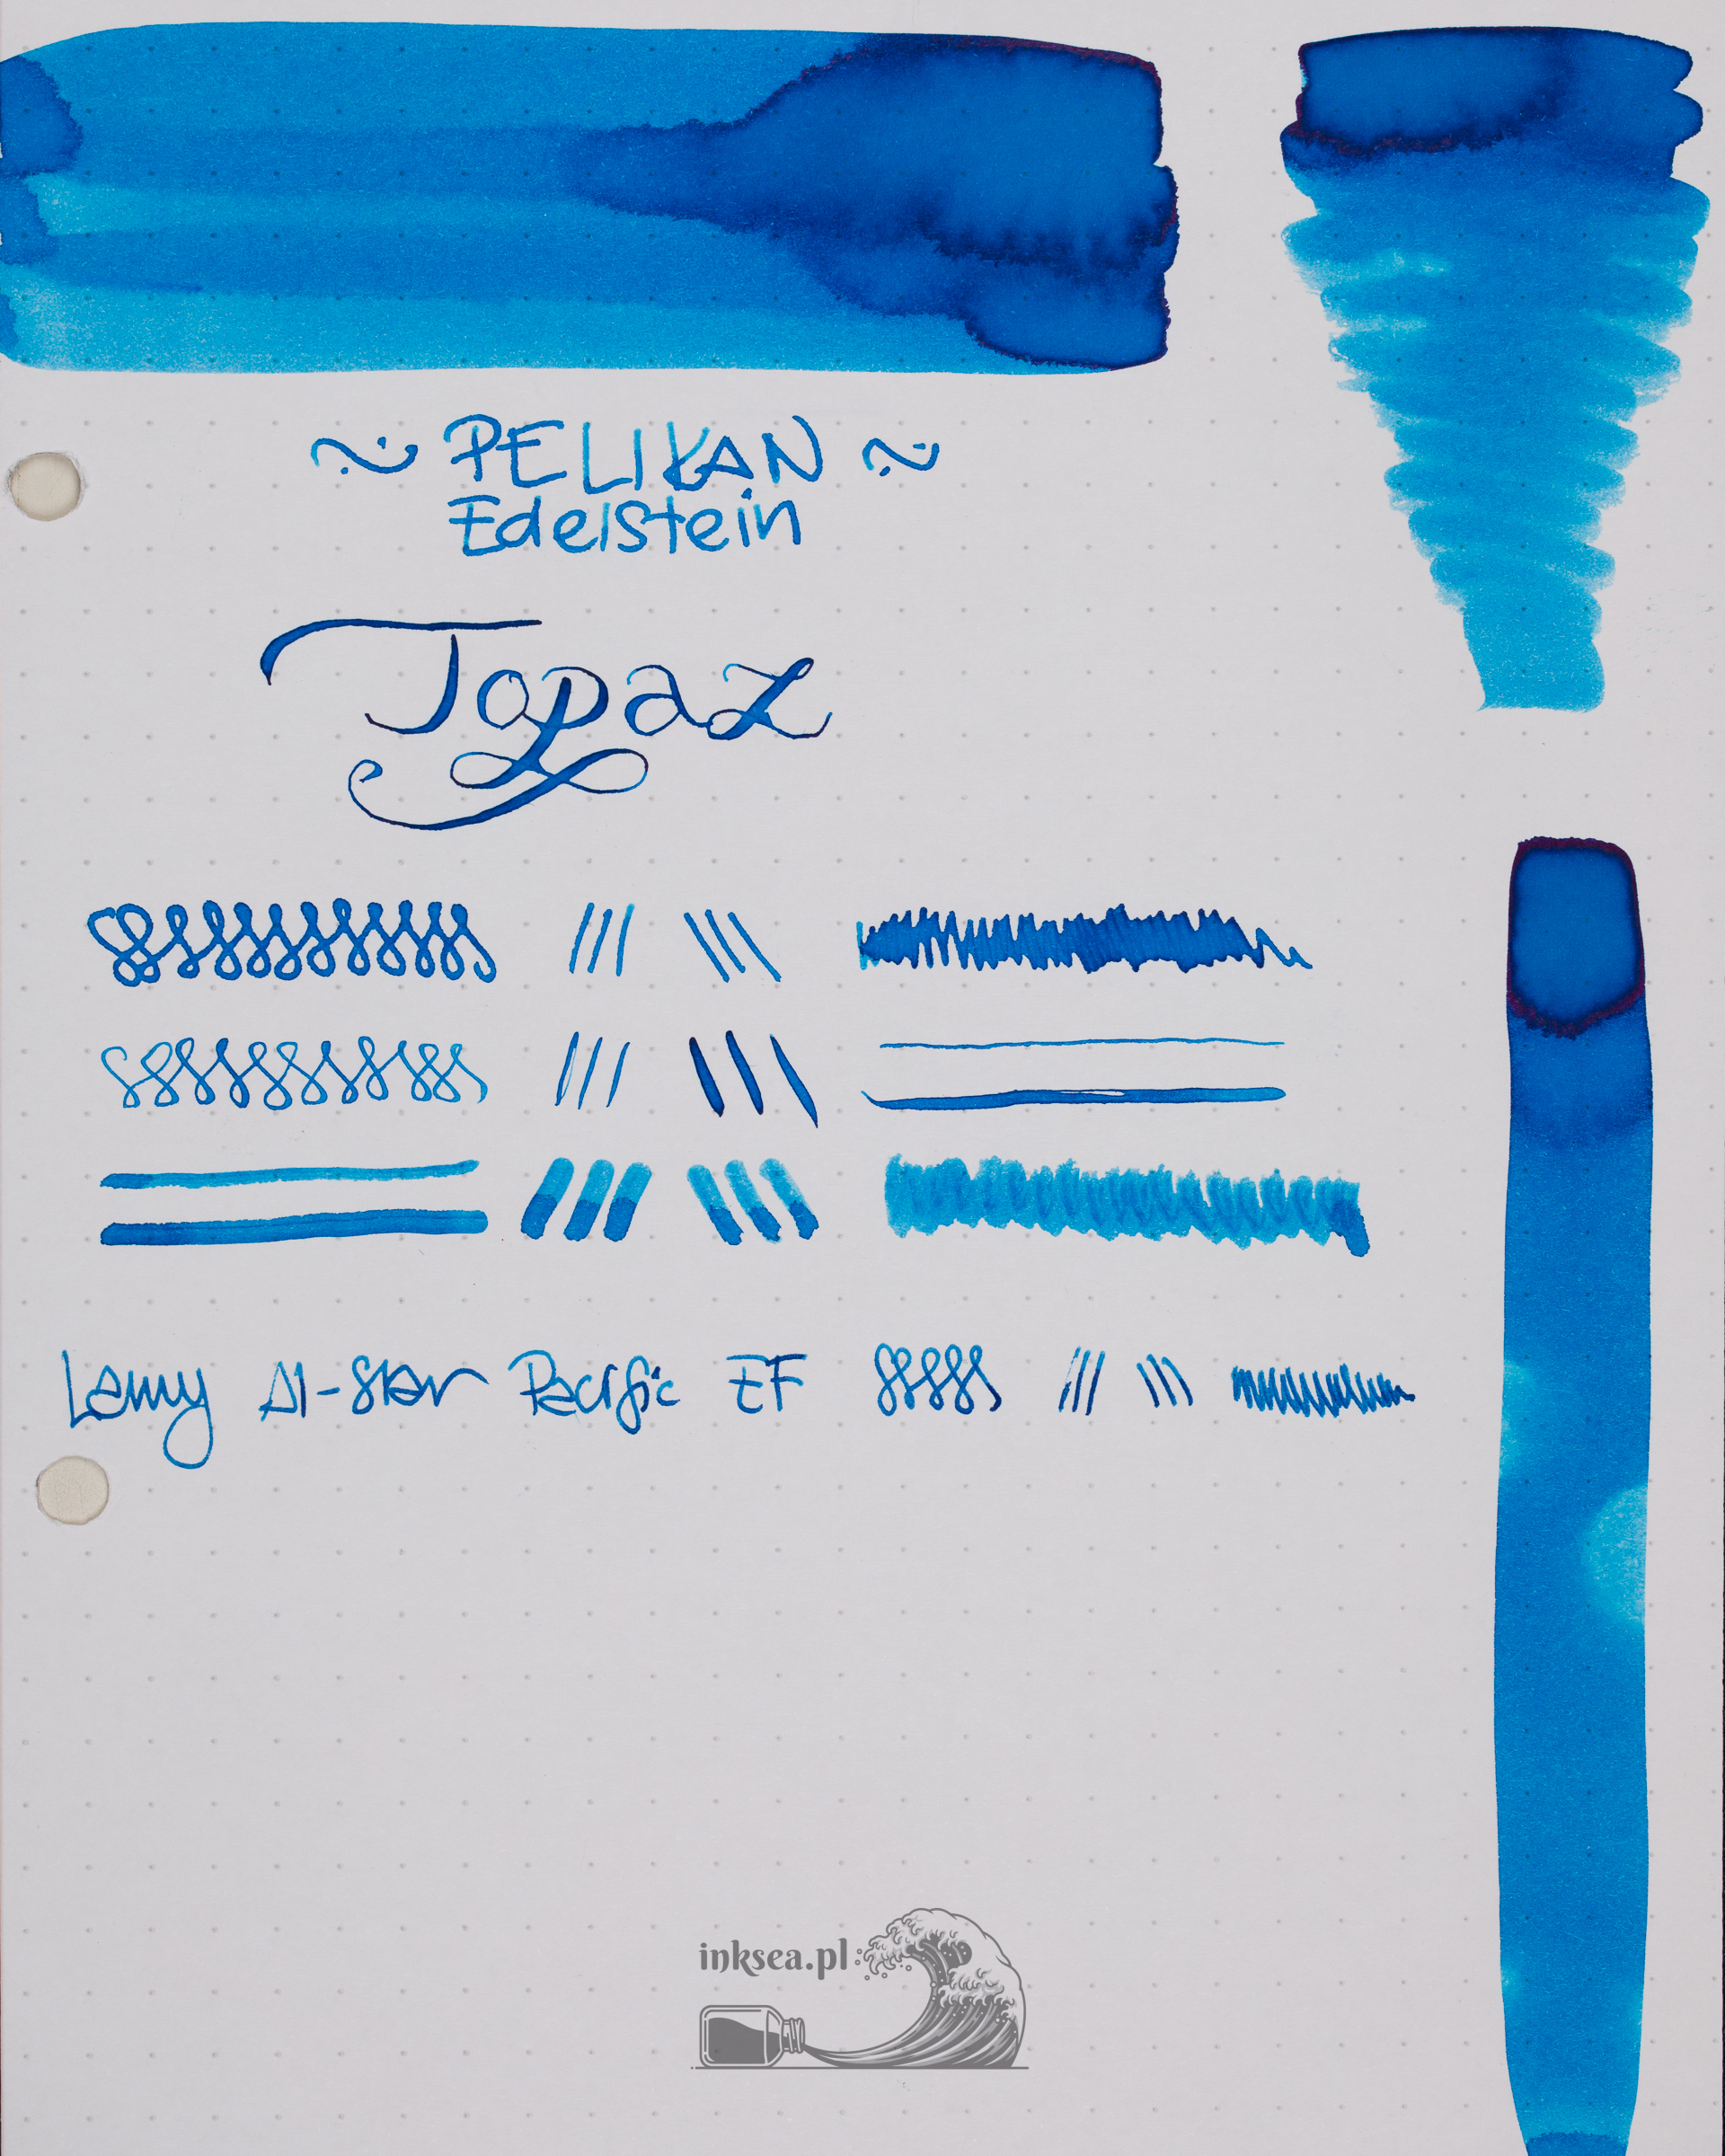 ~ PELIKAN ~
Edelstein
Topaz
Lamy Al-Star Pacific EF
inksea.pl